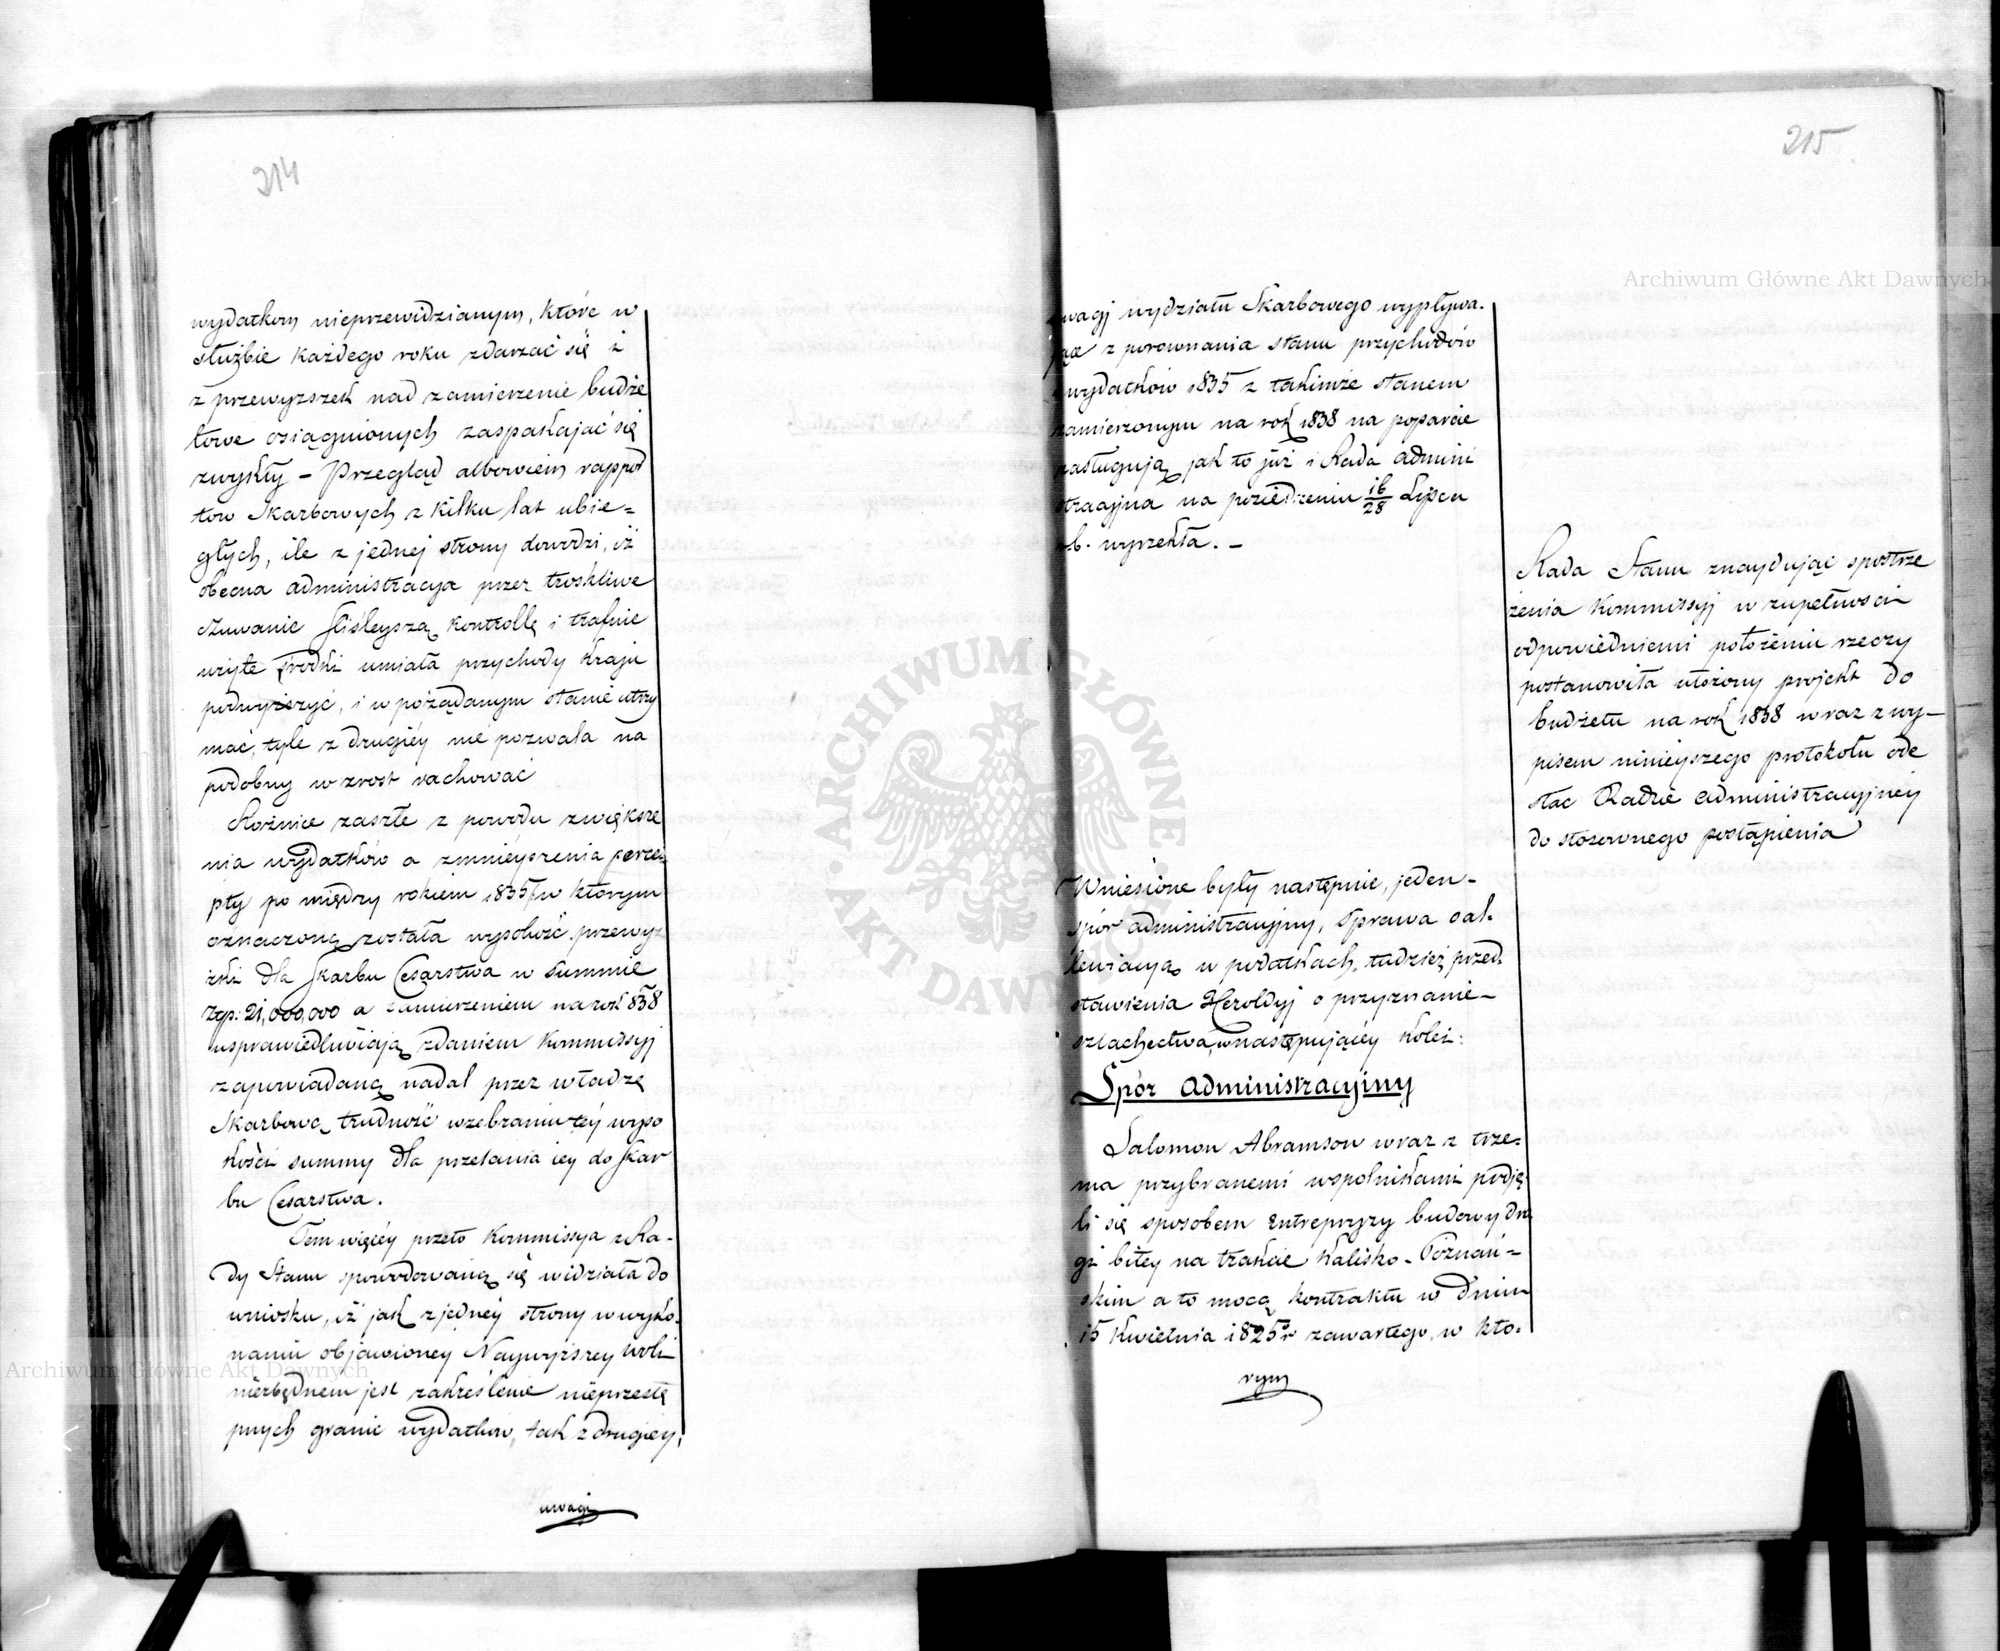 214
wydatkom nieprzewidzianym, które w
służbie każdego roku zdarzać się i
z przewyższek nad zamierzenie budże
towe osiągnionych zaspakajać się
zwykły – Przegląd albowiem rappor
tow Skarbowych z kilku lat ubie=
głych, ile z jednej strony dowodzi, iż
obecna administracya przez troskliwe
czuwanie ściśleyszą kontrollę i trafnie
użyte środki umiała przychody kraju
podwyższyć, i w pożądanym stanie utrzy
mać, tyle z drugiéy nie pozwala na
podobny wzrost rachować
Rożnice zaszłe z powodu zwiększe
nia wydatków a zmnieyszenia percep
pty po między rokiem 1835 w którym
oznaczoną została wysokość przewyż
żki dla Skarbu Cesarstwa w summie
Zp: 21,000,000 a zamierzeniem na rok 1838
usprawiedliwiają zdaniem Kommissyj
zapowiadaną nadal przez władzę
Skarbową trudność w zebraniu téy wyso
kości summy dla przesłania iey do Skar
bu Cesarstwa.
Tem więcéy przeto Kommissya z Ra-
dy Stanu spowodowaną się widziała do
wniosku, iż jak z jednéy strony w wyko-
naniu objawioney Naywyższey woli
niezbędnem jest zakreślenie nieprzestę
pnych granic wydatkow, tak z drugiey,
uwagi
215
uwagj wydziału Skarbowego wypływa-
jące z porownania stanu przychodów
i wydatków 1835 z takimże stanem
zamierzonym na rok 1838 na poparcie
zasługują jak to już i Rada admini
stracyjna na posiedzeniu 16/28 Lipca
r.b. wyrzekła. –
Rada Stanu znaydując spostrze
żenia Kommissyj w zupełności
odpowiedniemi położeniu rzeczy
postanowiła ułożony projekt do
budżetu na rok 1838 wraz z wy-
pisem ninieyszego protokołu ode
słac Radzie administracyjney
do stosownego postąpienia
Wniesione były następnie, jeden-
spór administracyjny, sprawa o al-
lewiacyą w podatkach, tudzież przed-
stawienia Heroldyj o przyznanie-
szlachectwa, w następującéy kolei:
Spór administracyiny
Salomon Abramson wraz z trze-
ma przybranemi wspolnikami podję-
li się sposobem entrepryzy budowy dro
gi bitey na trakcie Kalisko-Poznań-
skim a to mocą kontraktu w dniu
15 Kwietnia 1825 r zawartego, w któ-
rym
Archiwum Główne Akt Dawnych
Archiwum Główne Akt Dawnych
ARCHIWUM GŁÓWNE AKT DAWNYCH